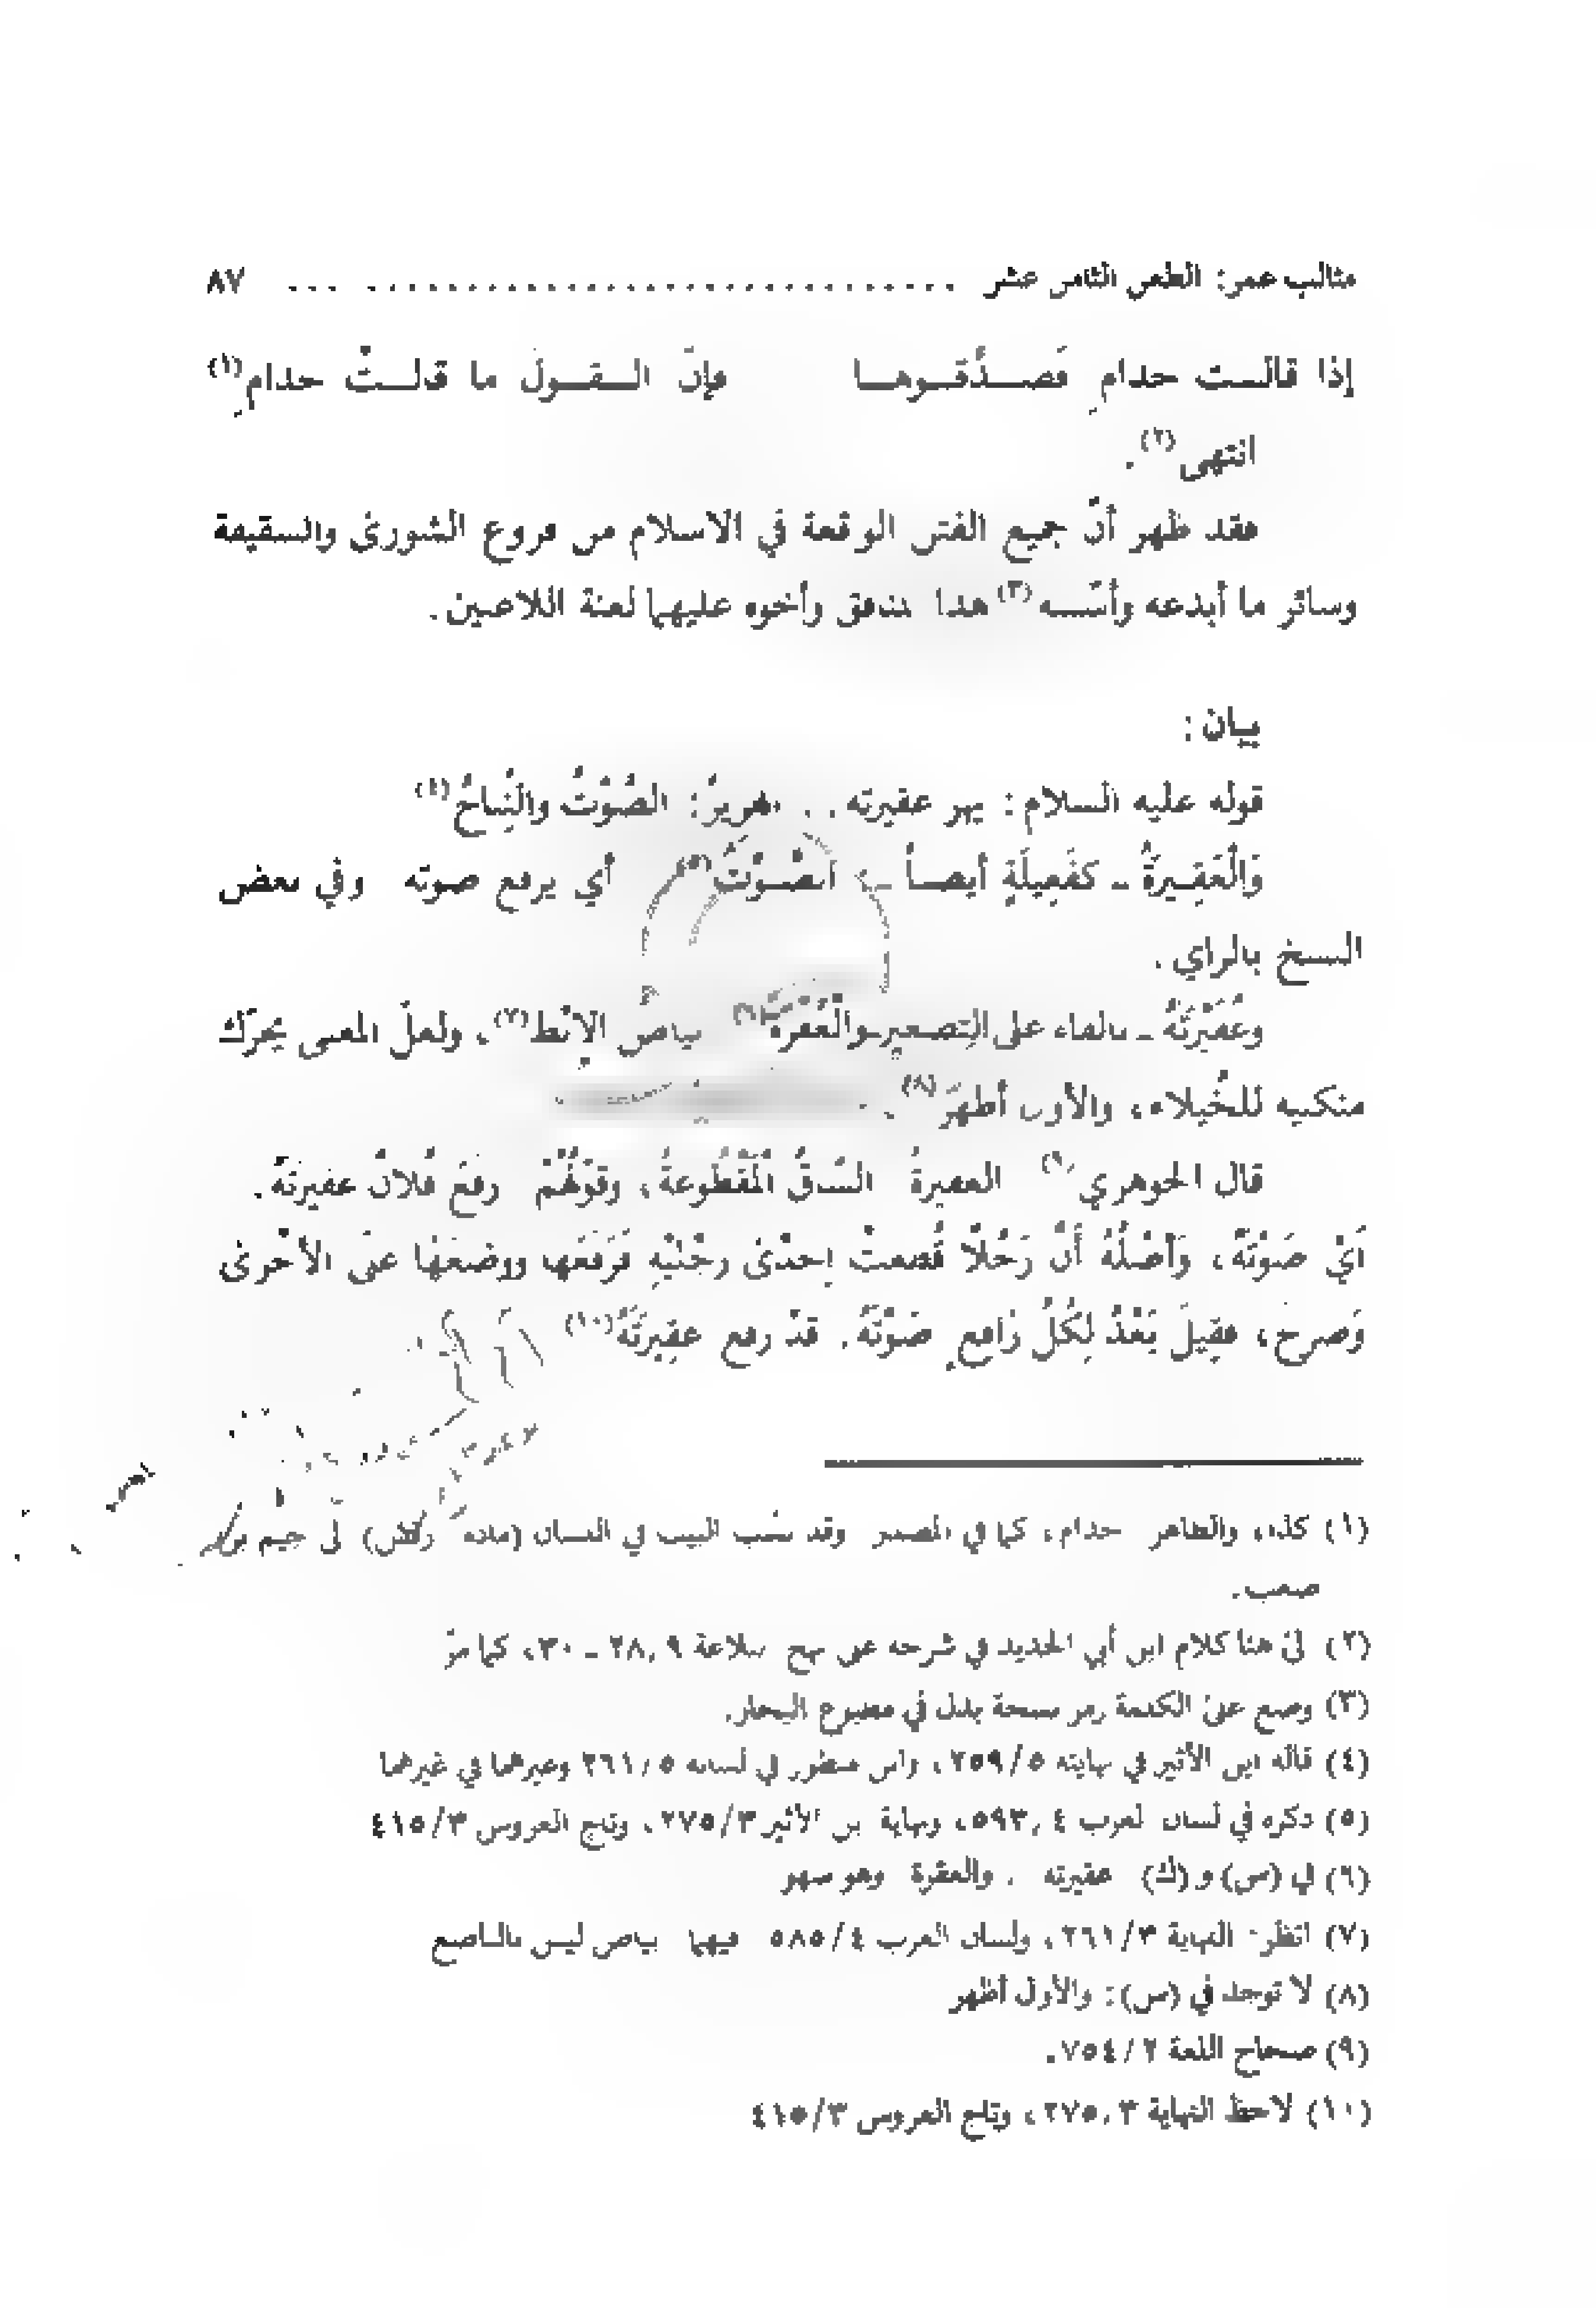 مثالب عمر: الطعن الثامن عشر ................................ ... ٨٧
إذا قالت حدام فصدّقوها فإنّ القول ما قالتْ حدامِ(١)
انتهى(٢).
فقد ظهر أنّ جميع الفتن الواقعة في الاسلام من فروع الشورى والسقيفة
وسائر ما أبدعه وأسّسه(٣) هذا المنافق وأخوه عليهما لعنة اللاعنين.
بيان:
قوله عليه السلام: يهر عقيرته.. الهريرُ: الصَّوْتُ والنِّباحُ(٤)
وَالْعَقِيرَةُ - كفَعِيلَةٍ أيضاً -: الصَّوْتُ(٥) أي يرفع صوته وفي بعض
النسخ بالزاي.
وعُفَيْرَتَهُ - بالفاء على التصغير والْعُفْرَةُ(٦) بياضُ الإبْط(٧)، ولعلّ المعنى يحرّك
منكبيه للخُيلاء، والأول أظهرُ(٨).
قال الجوهري(٩) العقيرةُ السّاقُ الْمَقْطُوعةُ، وقوْلُهُمْ رفعَ فُلانٌ عقيرتَهُ.
أَيْ صَوْتَهُ، وَأصْلُهُ أنَّ رَجُلاً قُطعتْ إحْدَىٰ رجْلَيْهِ فَرَفَعَها ووضعَهَا علىٰ الأخْرىٰ
وَصرخَ، فقِيلَ بَعْدُ لِكُلِّ رَافعٍ صَوْتَهُ. قدْ رفع عقِيرَتَهُ(١٠)
(١) كذا، والظاهر حذام، كما في المصدر وقد نسب البيت في اللسان (مادة رقش) إلى جيم بن
صعب.
(٢) إلى هنا كلام ابن أبي الحديد في شرحه على نهج البلاغة ٢٨,٩ - ٣٠، كما مرّ
(٣) وضع على الكلمة رمز نسخة بدل في مطبوع البحار.
(٤) قاله ابن الأثير في نهايته ٢٥٩/٥، وابن منظور في لسانه ٢٦١/٥ وغيرهما في غيرهما
(٥) ذكره في لسان العرب ٥٩٣,٤، ونهاية ابن الأثير ٢٧٥/٣، وتاج العروس ٤١٥/٣
(٦) في (س) و (ك) عقيرته . والعقرة وهو سهو
(٧) انظر النهاية ٢٦١/٣، ولسان العرب ٥٨٥/٤ فيهما بياض ليس بالناصع
(٨) لا توجد في (س): والأول أظهر
(٩) صحاح اللغة ٧٥٤/٢.
(١٠) لاحظ النهاية ٢٧٥,٣، وتاج العروس ٤١٥/٣